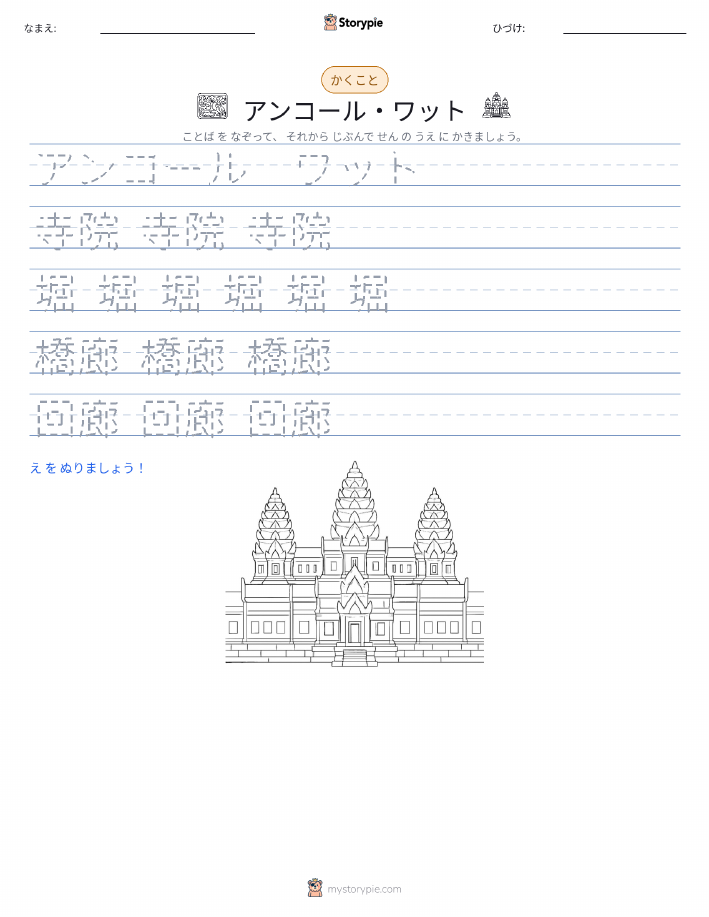 なまえ:
Storypie
ひづけ:
かくこと
アンコール・ワット
ことば を なぞって、 それから じぶんで せん の うえ に かきましょう。
アンコール ワット
寺院 寺院 寺院
堀 堀 堀 堀 堀 堀
橋廊 橋廊 橋廊
回廊 回廊 回廊
え を ぬりましょう！
mystorypie.com